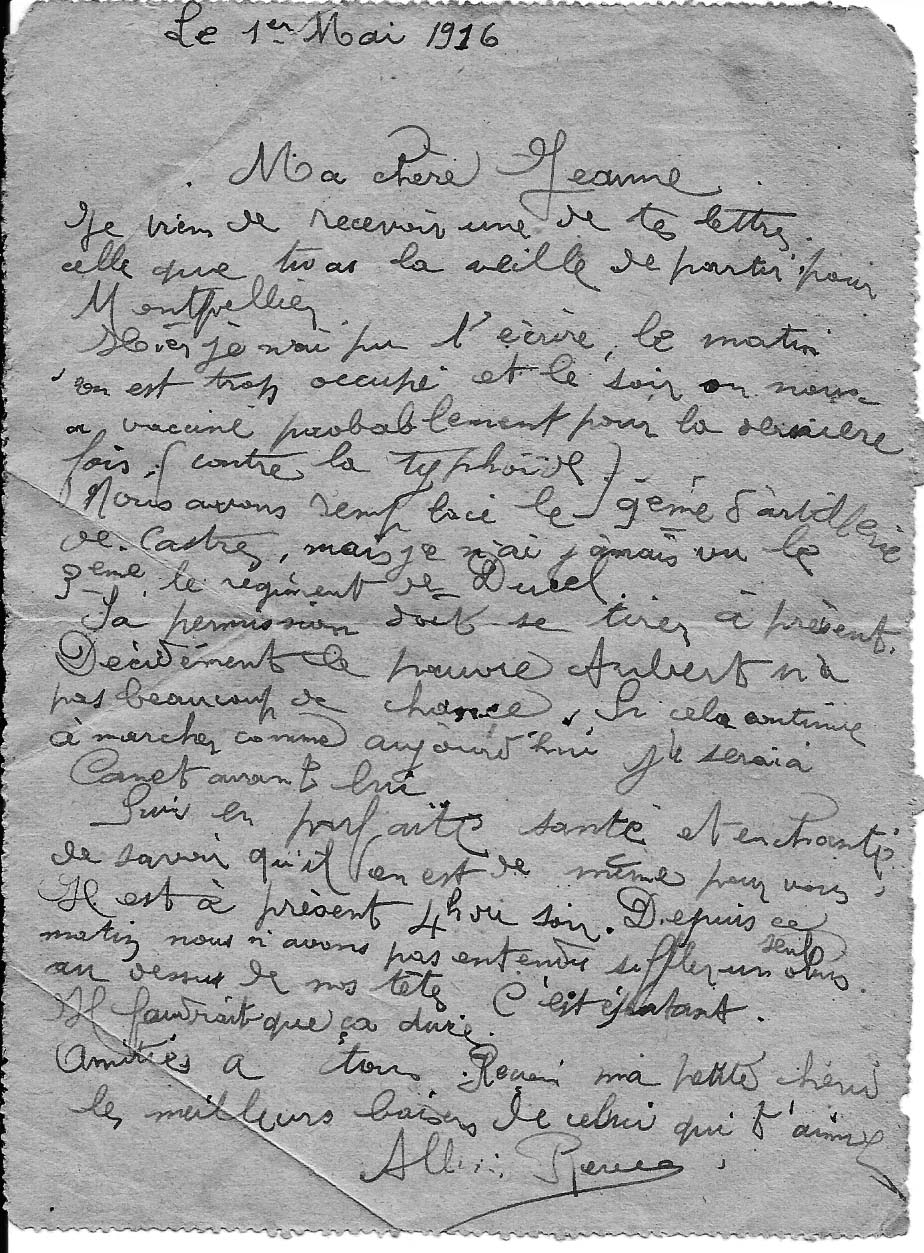 Le 1er Mai 1916
Ma chère Jeanne
Je viens de recevoir une de tes lettres.
celle que tu as la veille de partir pour
Montpellier
Hier je n'ai pu t'écrire, le matin
on est trop occupé et le soir on nous
a vacciné probablement pour la dernière
fois. (contre la typhoïde)
Nous avons remplacé le 9ème d'artillerie
de Castres, mais je n'ai jamais vu le
3ème, le régiment de
Sa permission doit se tirer à présent.
Décidément le pauvre Aubert n'a
pas beaucoup de chance, Si cela continue
à marcher comme aujourd'hui je serai à
Canet avant lui
Suis en parfaite santé et enchanté
de savoir qu'il en est de même pour vous,
Il est à présent 4h du soir. Depuis ce
matin nous n'avons pas entendu siffler un seul obus
au dessus de nos têtes C'est épatant.
Il faudrait que ça dure.
Amitiés a tous Reçois ma petite chérie
les meilleurs baisers de celui qui t'aime